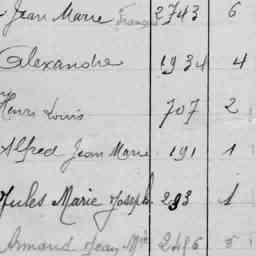 Jean Marie François 2743 6
Alexandre 1934 4
Henri Louis 707 2
Alfred Jean Marie 191 1
Jules Marie Joseph 293 1
Armand Jean Mie 2496 5